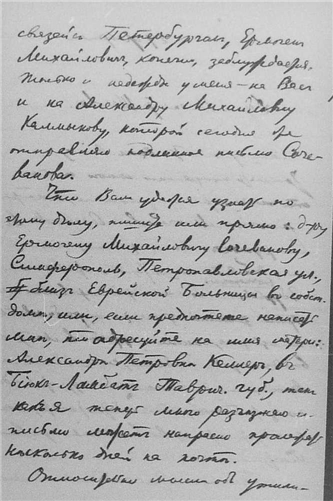 связей съ Петербургомъ, Ермоген
Михайловичъ, конечно, заблуждается.
Только и надежды у меня – на Васъ
и на Александру Михайловну
Калмыкову, которой сегодня же
отправляю подлинное письмо Соче-
ванова.
Что Вамъ удастся узнать по
этому делу, пишите или прямо: д-ру
Ермогену Михайловичу Сочеванову,
Симферополь, Петропавловская ул.
близъ Еврейской Больницы въ собст.
доме, или, если предпочтете написать
мне, то адресуйте на имя
Александры Петровны Келлеръ, въ
Біюкъ-Ламбатъ Таврич. губ.,
я теперь много разъезжаю и
письмо можетъ напрасно пролежать
несколько дней на почте.
Относительно мысли объ